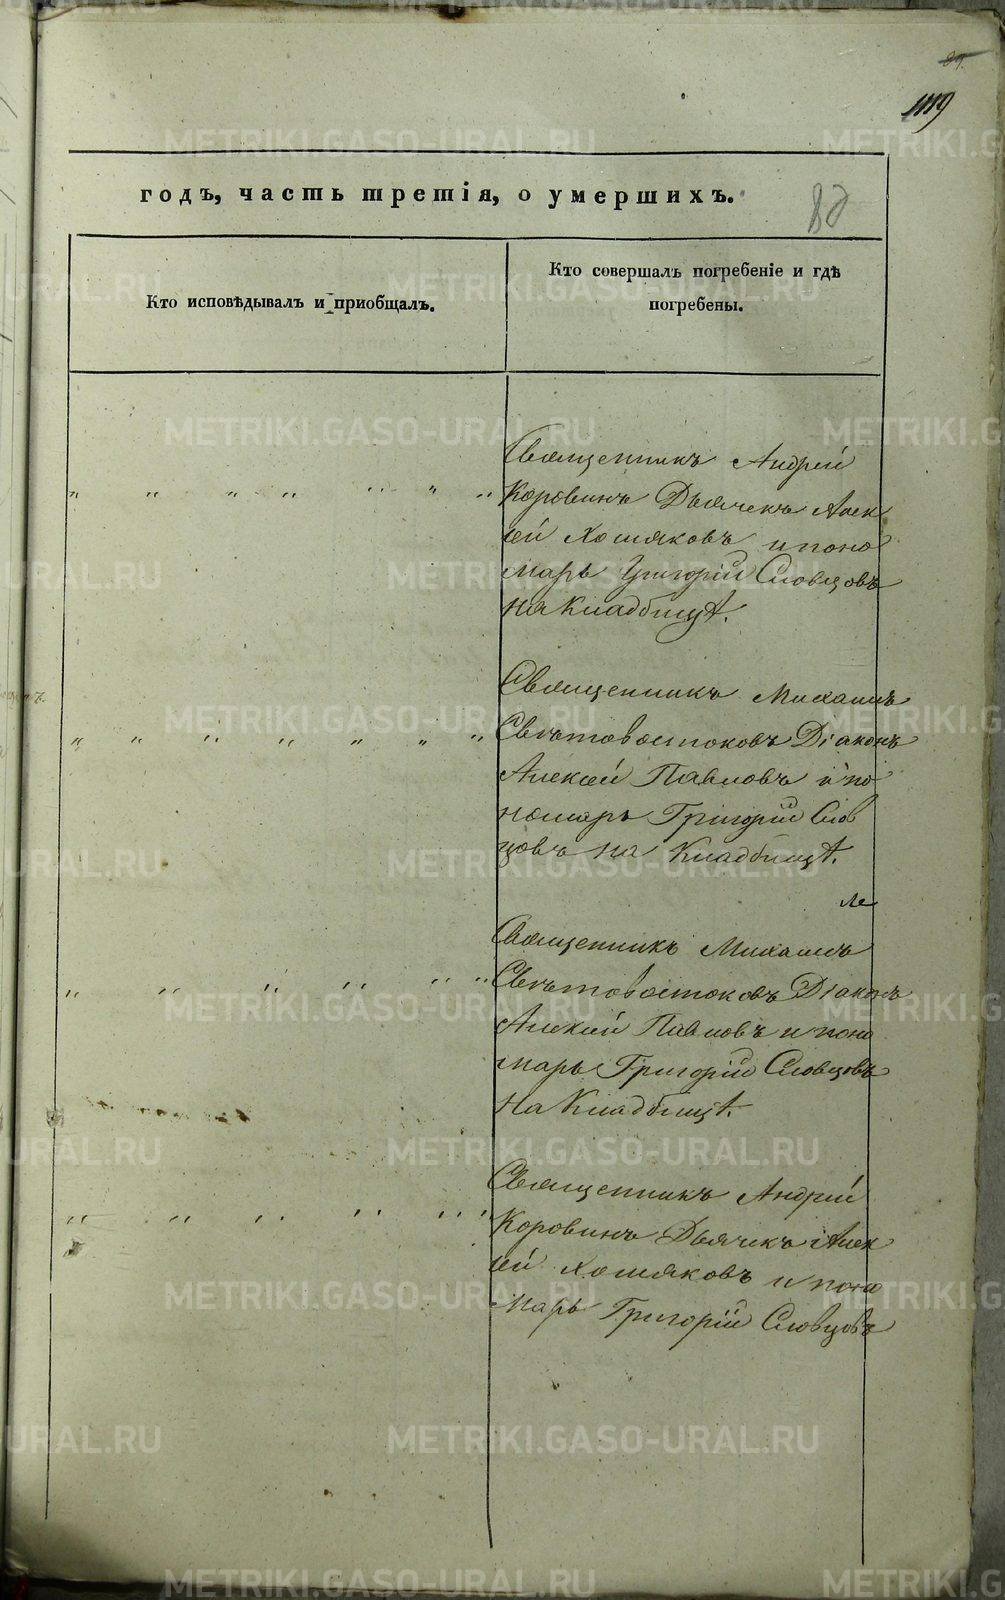 89.
1119
годъ, часть третія, о умершихъ.
Кто исповѣдывалъ и пріобщалъ.
Кто совершалъ погребеніе и гдѣ
погребены.
Священникъ Андрей
Коровинъ Дьячекъ Алек
сѣй Хомяковъ и поно
марь Григорій Словцовъ
на Кладбищѣ.
Священникъ Михаилъ
Свѣтовостоковъ Діаконъ
Алексѣй Павловъ и по
номарь Григорій Слов
цовъ на Кладбищѣ.
Священникъ Михаилъ
Свѣтовостоковъ Діаконъ
Алексѣй Павловъ и поно
марь Григорій Словцовъ
на Кладбищѣ.
Священникъ Андрей
Коровинъ Дьячекъ Алек
сѣй Хомяковъ и поно
марь Григорій Словцовъ
METRIKI.GASO-URAL.RU